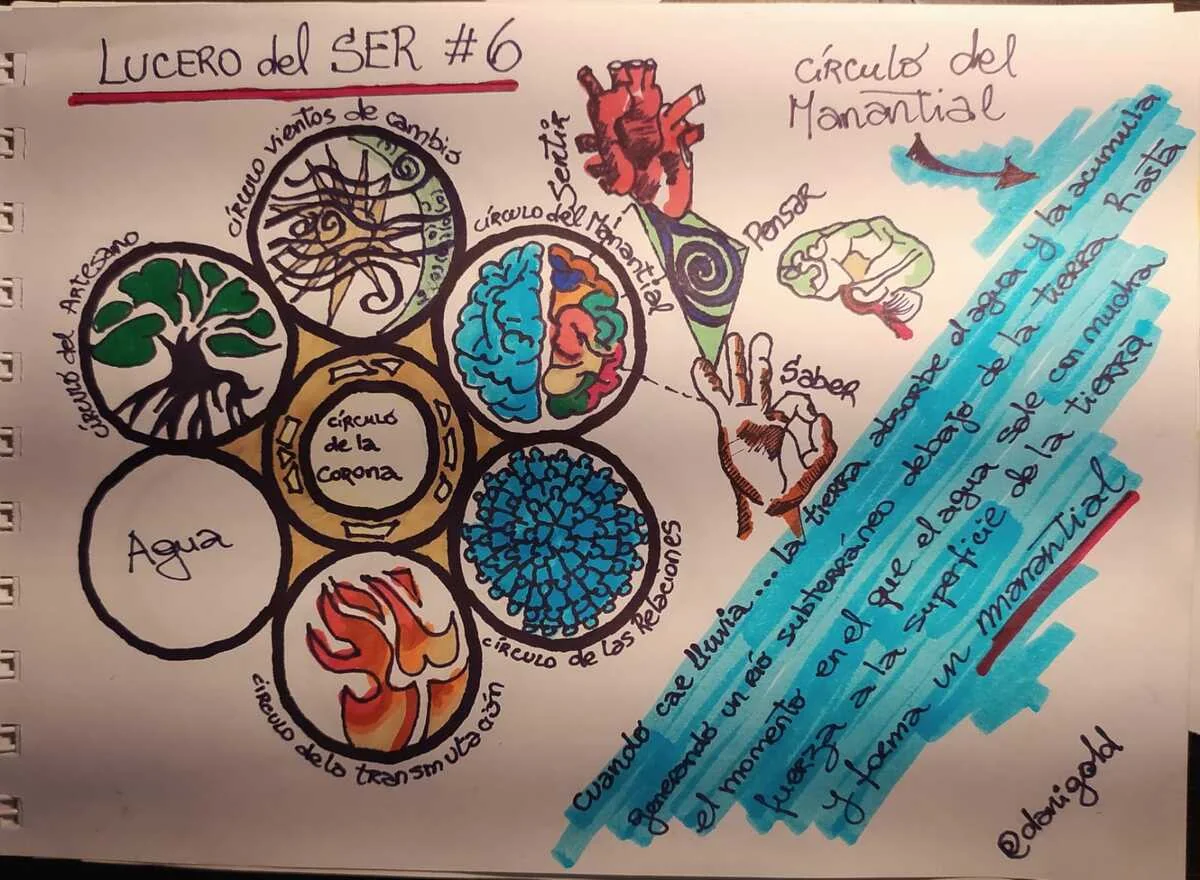 LUCERO del SER #6
CÍRCULO del
Manantial
CÍRCULO vientos de cambio
CÍRCULO del Artesano
CÍRCULO del Manantial
Sentir
Pensar
Saber
CÍRCULO
de la
CORONA
Agua
CÍRCULO de las Relaciones
CIRCULO de la transmutación
Cuando cae lluvia... la tierra absorbe el agua y la acumula
generando un río subterráneo debajo de la tierra hasta
el momento en el que el agua sale con mucha
fuerza a la superficie de la tierra
y forma un manantial
@danigold